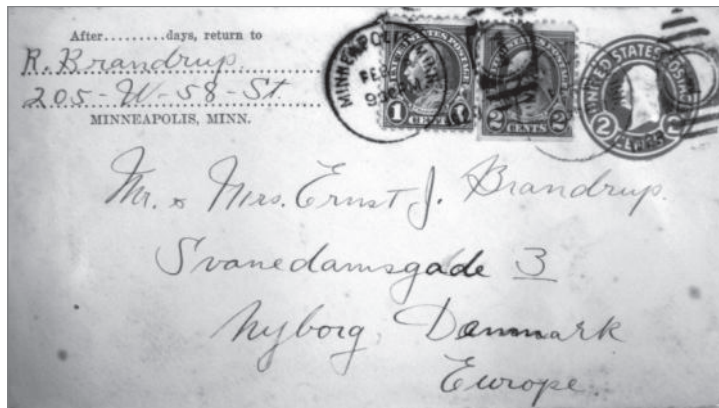 After.........days, return to
R. Brandrup.
205-W-58-St.
MINNEAPOLIS, MINN.
MINNEAPOLIS, MINN.
FEB
UNITED STATES POSTAGE
1 CENT 1
UNITED STATES POSTAGE
2 CENTS 2
UNITED STATES POSTAGE
2 2
Mr. & Mrs. Ernst J. Brandrup.
Svanedamsgade 3
Nyborg, Denmark
Europe.